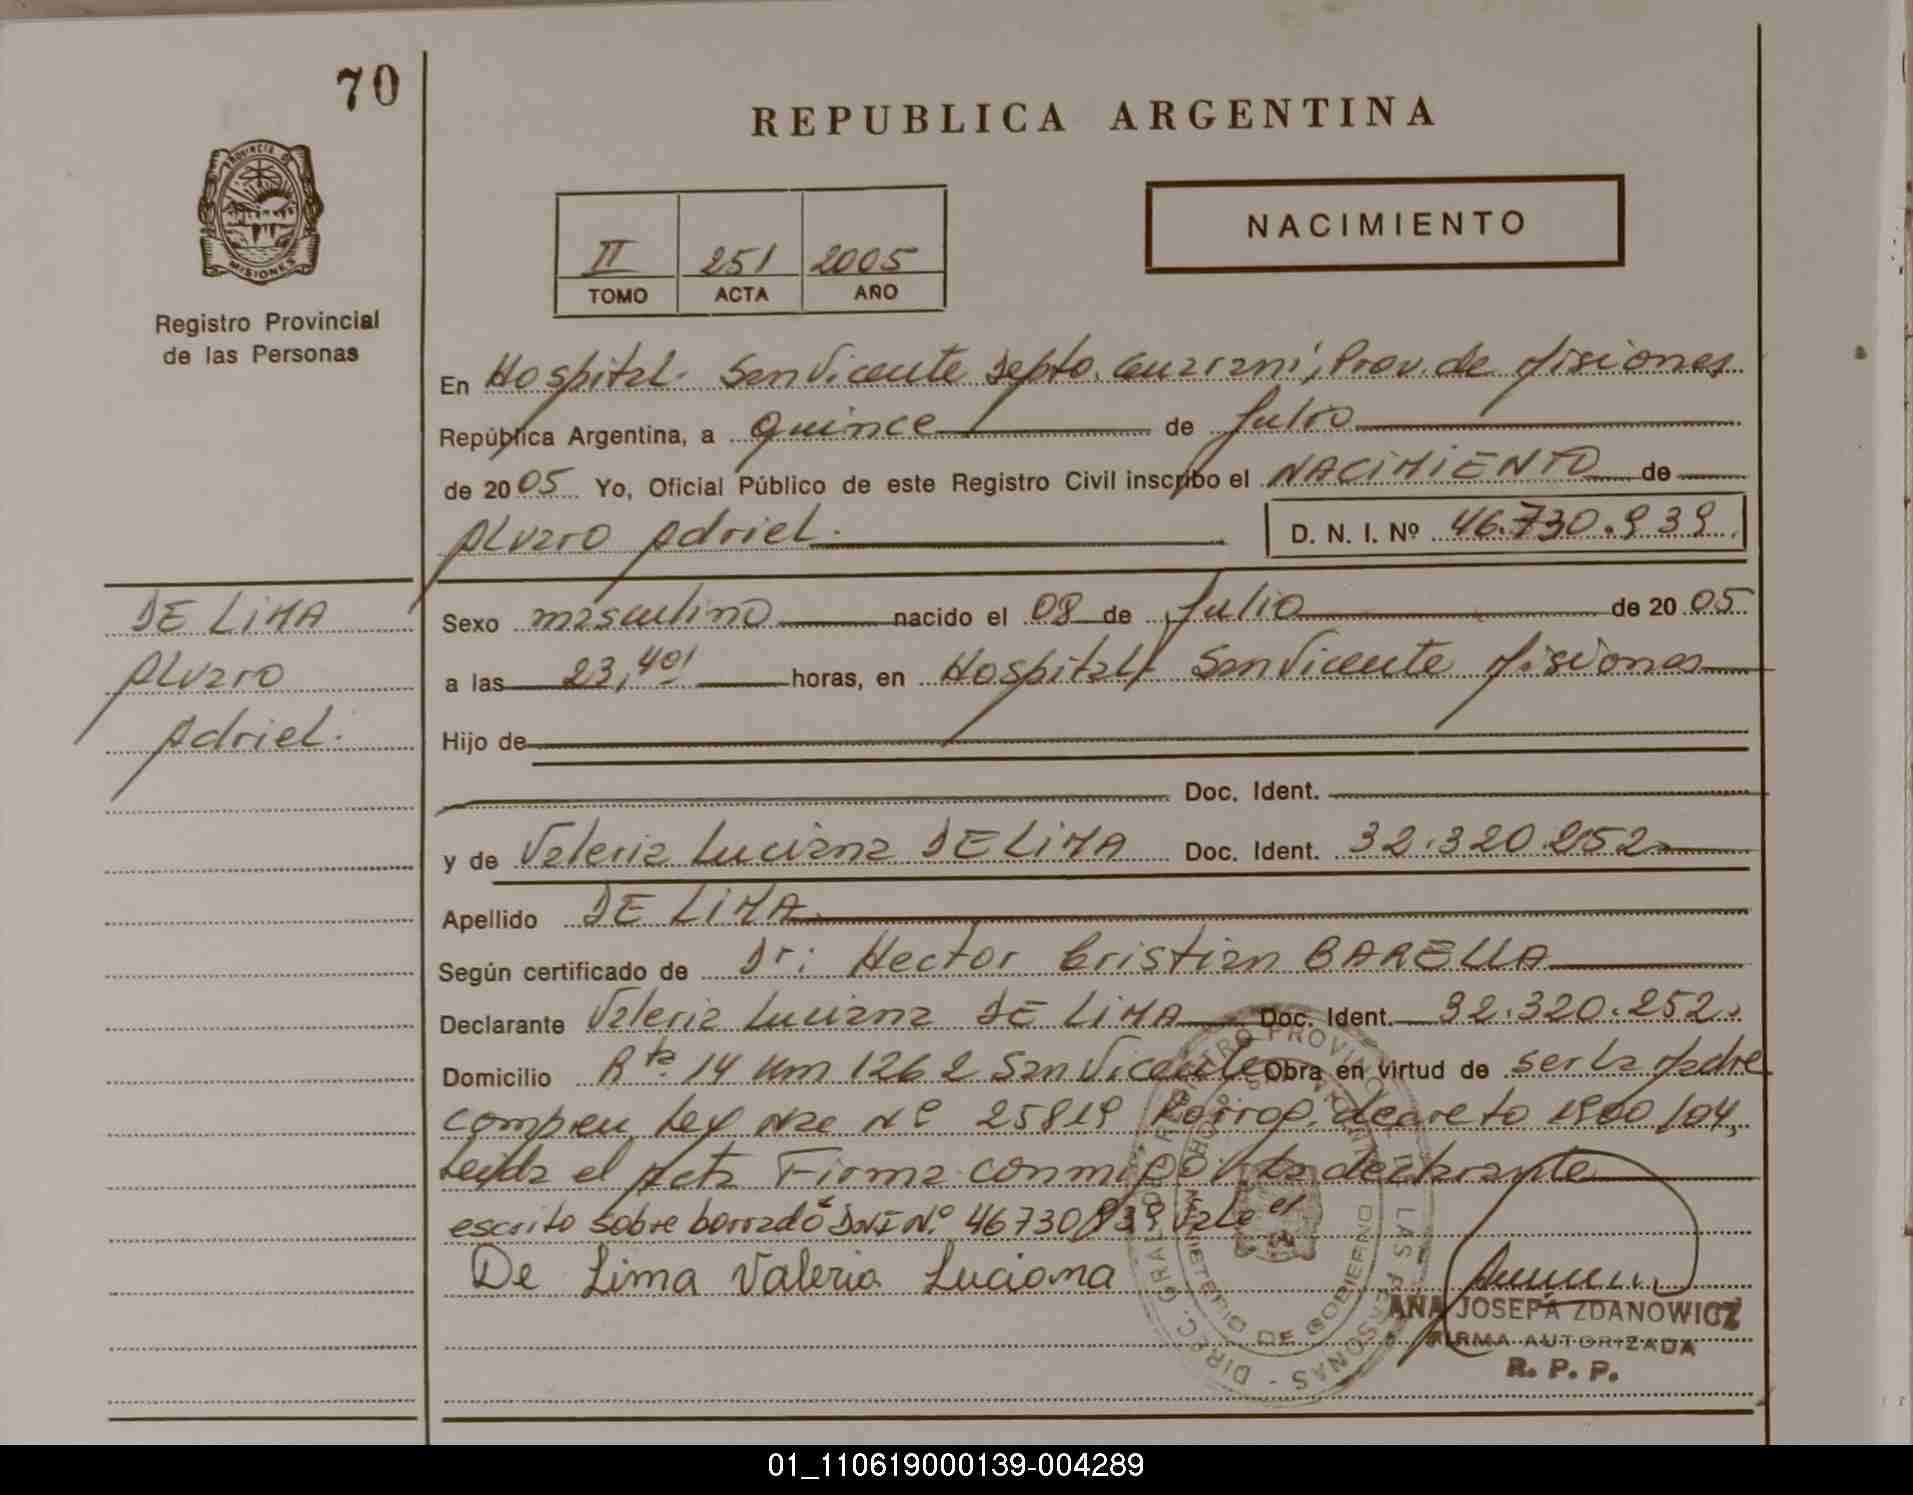 70
REPUBLICA ARGENTINA
PROVINCIA DE
MISIONES
NACIMIENTO
II 251 2005
TOMO ACTA AÑO
Registro Provincial
de las Personas
En Hospital. San Vicente Depto. Guarani, Prov. de Misiones
República Argentina, a quince de Julio
de 2005 Yo, Oficial Público de este Registro Civil inscribo el NACIMIENTO de
Alvaro Adriel. D. N. I. Nº 46.730.939
DE LIMA
Alvaro
Adriel.
Sexo masculino nacido el 08 de Julio de 2005
a las 23,40' horas, en Hospital San Vicente Misiones
Hijo de
Doc. Ident.
y de Valeria Luciana DE LIMA Doc. Ident. 32.320.252
Apellido DE LIMA
Según certificado de Dr: Hector Cristian BARELLA
Declarante Valeria Luciana DE LIMA Doc. Ident. 32.320.252.
Domicilio Rta. 14 Km 1262 San Vicente Obra en virtud de ser la Madre
Ley Nº 25819 Prorrog. decreto 1900/04,
Leida el Acta Firma conmigo la declarante
escrito sobre borrado DNI N.º 46730939 vale
De Lima Valeria Luciana
ANA JOSEFA ZDANOWICZ
FIRMA AUTORIZADA
R. P. P.
DIREC. GRAL. DE REGISTRO PROVINCIAL DE LAS PERSONAS
MINISTERIO DE GOBIERNO
01_110619000139-004289